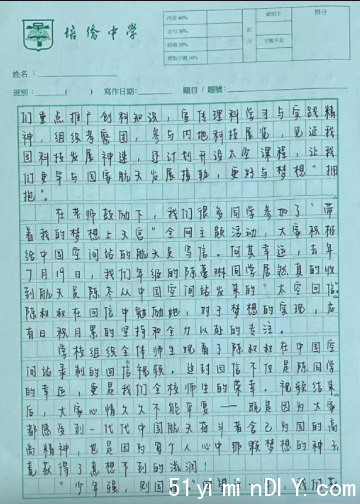 培僑中學
內容40%
文句30%
結構20%
標點字體10%
評分
錯別字
字數不足
得分
姓名：
班別：( ) 寫作日期： 題目/題號：
们重点推广创科知识，宣传理科学习与实践精
神，组织考察团，参与内地科技展览，见证我
国科技发展神速，还计划开设太空课程，让我
们更早与国家航天发展接轨，更好与梦想“拥
抱”。
在老师鼓励下，我们很多同学参加了“带
着我的梦想上天宫”全网主题活动，大家积极
给中国空间站的航天员写信。何其幸运，去年
7月19日，我们年级的陈 琳同学居然真的收
到航天员陈冬从中国空间站发来的“太空回信。
陈叔叔在回信中勉励她，对于梦想的实现，应
有日积月累的坚持和全力以赴的专注。
学校组织全体师生观看了陈叔叔在中国空
间站录制的回信视频。这封回信不仅是陈同学
的幸运，更是我们全校师生的荣幸。视频结束
后，大家心情久久不能平复——既是因为大家
都感受到一代代中国航天奋斗者舍己为国的高
尚精神，也是因为每个人心中那颗梦想的种子
竟获得了意想不到的滋润！
“少年强，则国
51yimindly.com